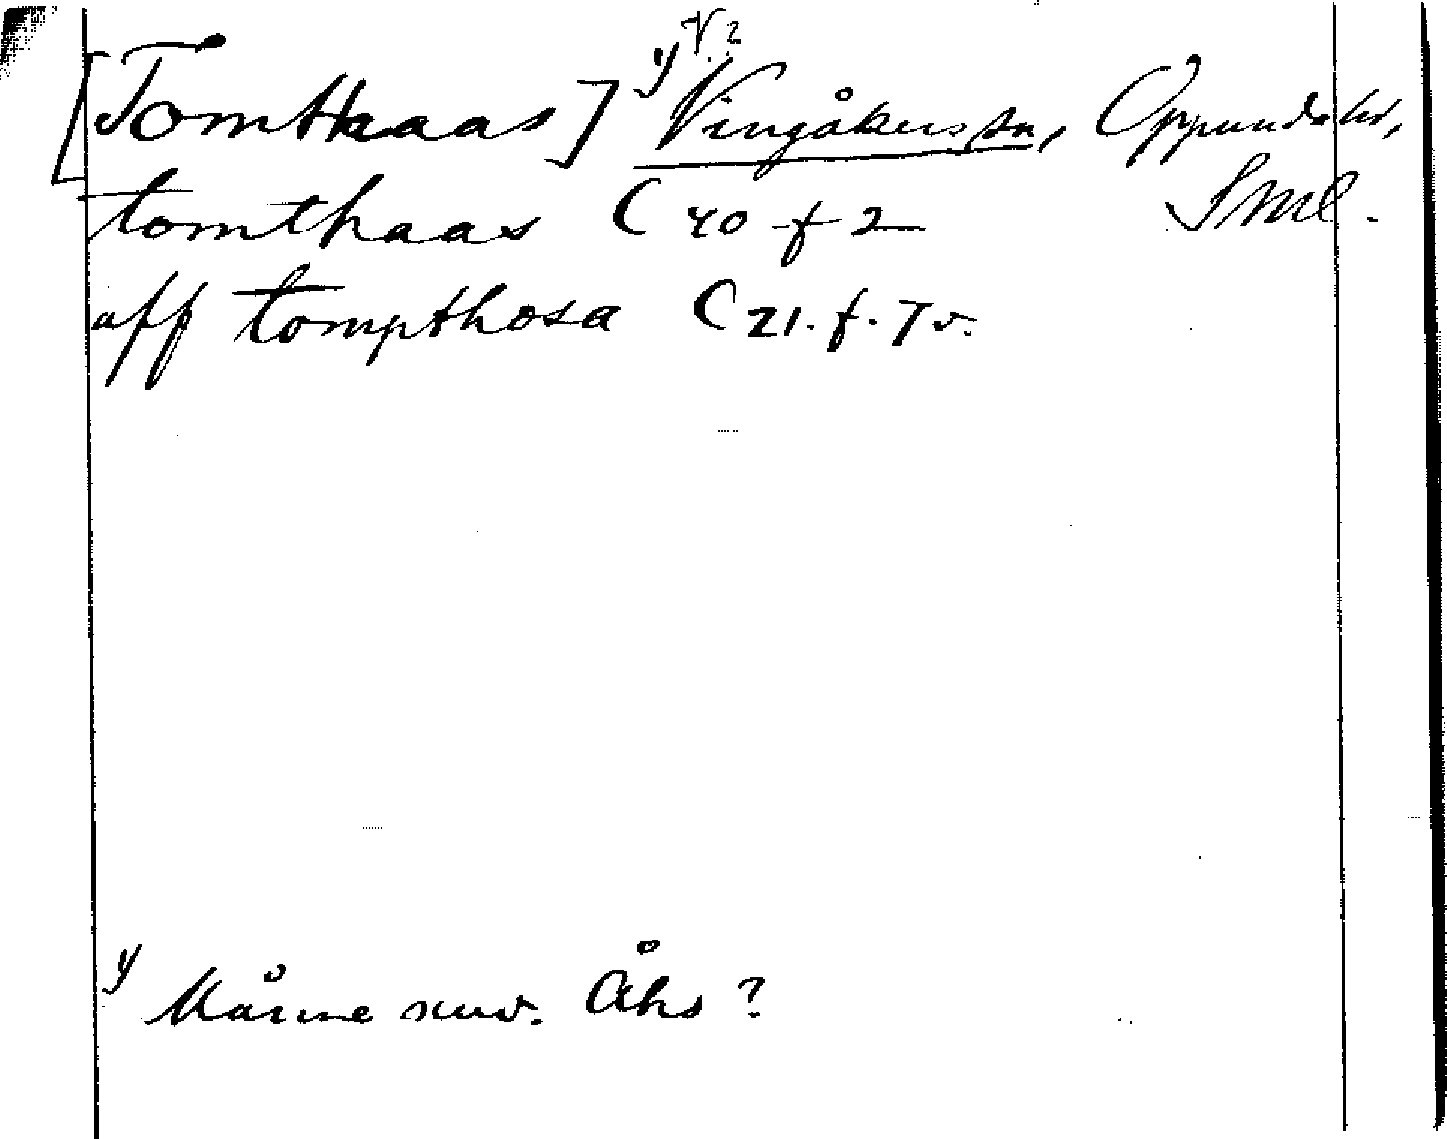 V. 2
[Tomthaas] y Vingåkers sn, Oppunda hd,
tomthaas C 40 f 2 Sml.
aff tompthosa C 21. f. 7 v.
y Månne nuv. Åhs ?